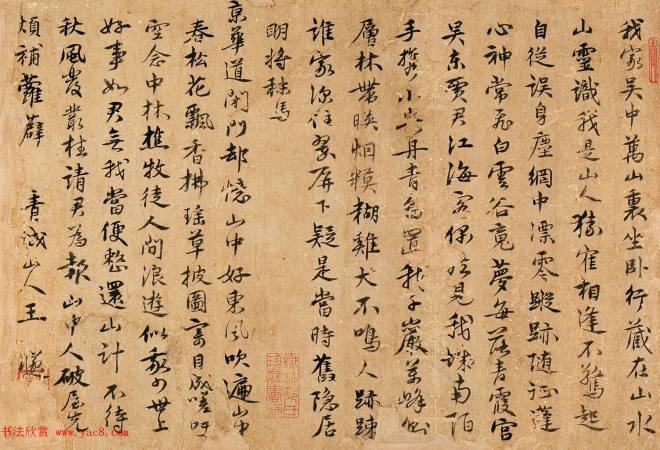 我家吳中萬山裏坐卧行藏在山水
山靈識我是山人猿隺相逢不驚起
自從誤身塵網中漂零蹤跡随征蓬
心神常飛白雲谷夢每落青霞宮
吳東賈君江海客偶然見我城南陌
手小丹青為置我千巖萬峰
層林帶暎烟糢糊雞犬不鳴人跡踈
誰家深住翠屏下疑是當時舊隐居
明將秣馬
京華道閉門却憶山中好東風吹遍山中
春松花飄香拂瑶草披圖寄目成嗟吁
空念中林樵牧徒人間浪遊似我少世上
好事如君無我當便整還山計不待
秋風發叢桂請君為報山中人破屋先
煩補蘿薜 青城山人王璲
书法欣赏 www.yac8.com